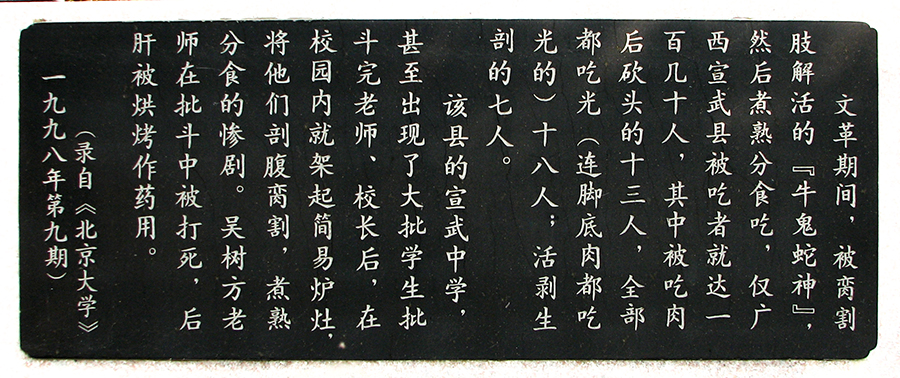 文革期间，被脔割
肢解活的『牛鬼蛇神』，
然后煮熟分食吃，仅广
西宣武县被吃者就达一
百几十人，其中被吃肉
后砍头的十三人，全部
都吃光（连脚底肉都吃
光的）十八人；活剥生
剖的七人。
该县的宣武中学，
甚至出现了大批学生批
斗完老师、校长后，在
校园内就架起简易炉灶，
将他们剖腹脔割，煮熟
分食的惨剧。吴树方老
师在批斗中被打死，后
肝被烘烤作药用。
（录自《北京大学》
一九九八年第九期）